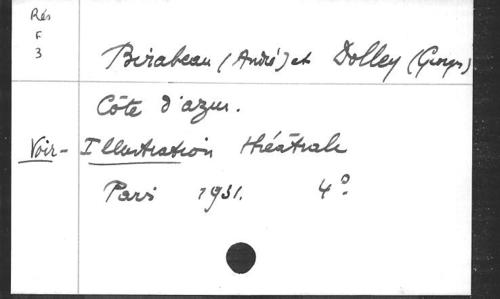 Rés
F
3
Birabeau (André) et Dolley (Georges)
Côte d'azur.
Voir - Illustration théâtrale
Paris 1931. 4°